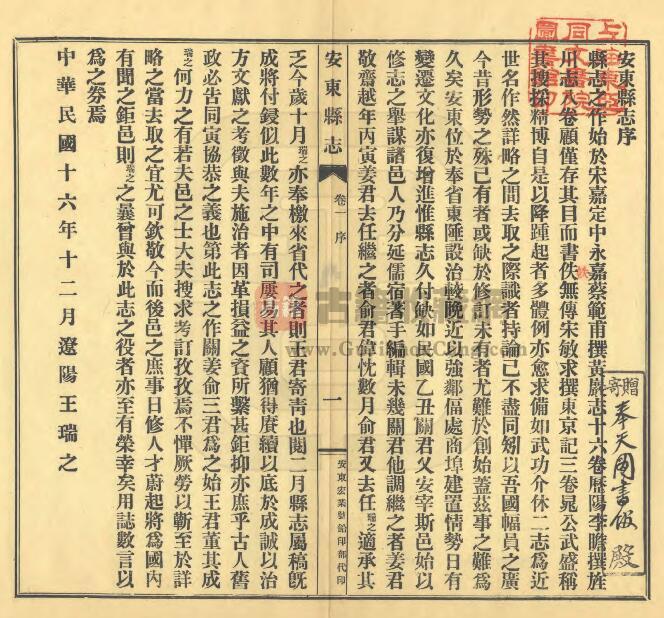 安東縣志序
縣志之作始於宋嘉定中永嘉蔡範甫撰黃巖志十六卷歷陽李瞻撰旌
川志八卷顧僅存其目而書佚無傳宋敏求撰東京記三卷晁公武盛稱
其搜採精博自是以降踵起者多體例亦愈求備如武功介休二志為近
世名作然詳略之間去取之際識者特論已不盡同矧以吾國幅員之廣
今昔形勢之殊已有者或缺於修訂未有者尤難於創始蓋茲事之難為
久矣安東位於奉省東陲設治較晚近以強鄰偪處商埠建置情勢日有
變遷文化亦復增進惟縣志久付缺如民國乙丑關君乂安宰斯邑始以
修志之舉謀諸邑人乃分延儒宿著手編輯未幾關君他調繼之者姜君
敬齋越年丙寅姜君去任繼之者俞君偉忱數月俞君又去任瑞之適承其
安東縣志
卷一 序
一
安東宏業號鉛印部代印
乏今歲十月瑞之亦奉檄來省代之者則王君寄青也閱二月縣志屬稿旣
成將付鋟似此數年之中有司屢易其人顧猶得賡續以底於成誠以治
方文獻之考徵與夫施治者因革損益之資所繫甚鉅抑亦庶乎古人舊
政必告同寅協恭之義也第此志之作關姜俞三君為之始王君董其成
瑞之何力之有若夫邑之士大夫搜求考訂孜孜焉不憚厥勞以蘄至於詳
略之當去取之宜尤可欽敬今而後邑之庶事日修人才蔚起將為國內
有聞之鉅邑則瑞之之曩曾與於此志之役者亦至有榮幸矣用誌數言以
為之券焉
中華民國十六年十二月遼陽王瑞之
寄贈
奉天圖書館 殿
古籍收藏網
www.GujiShouCang.com